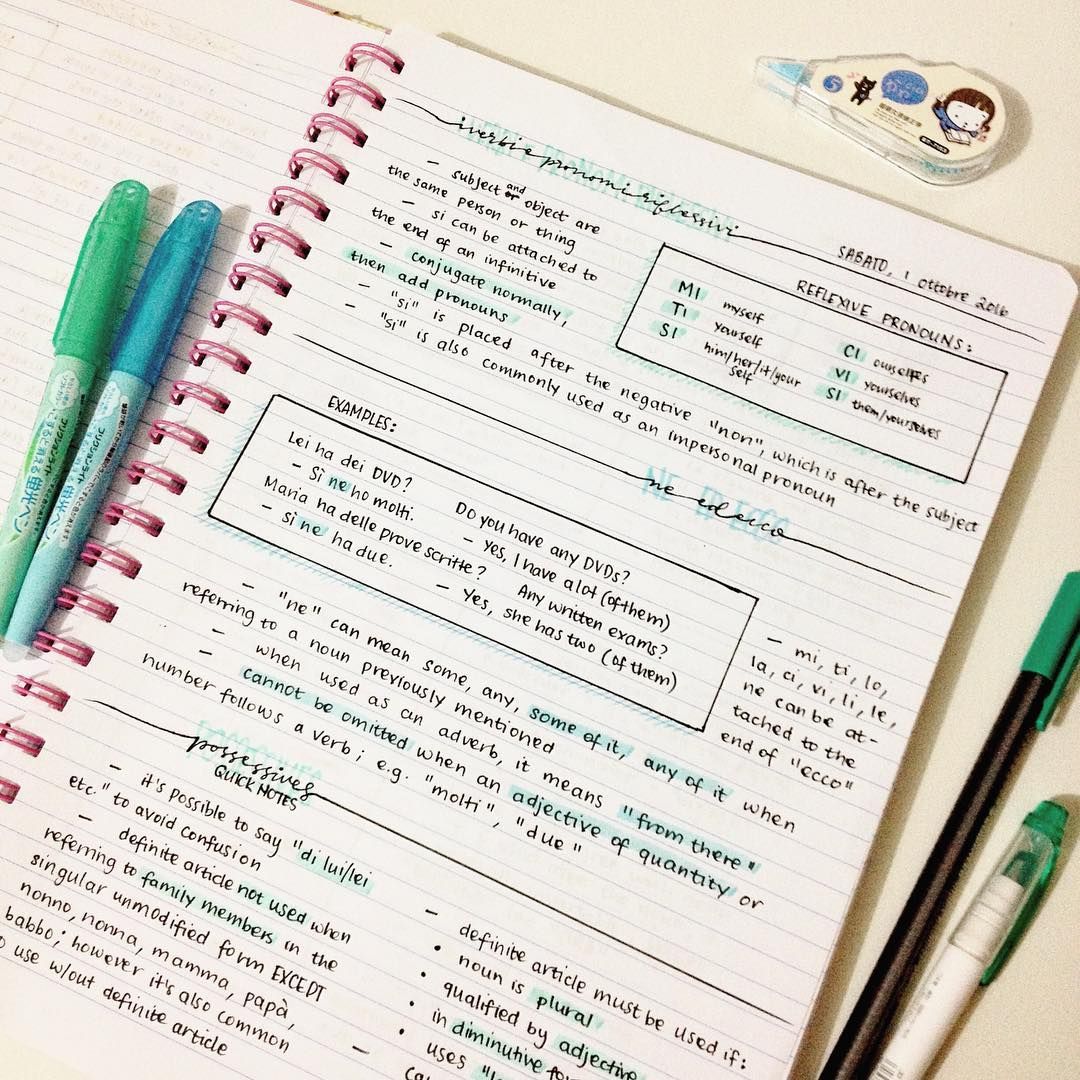 i verbi e pronomi riflessivi
SABATO, 1 ottobre 2016
– subject and object are
the same person or thing
– si can be attached to
the end of an infinitive
– conjugate normally,
then add pronouns
– "si" is placed after the negative "non", which is after the subject
– "si" is also commonly used as an impersonal pronoun
REFLEXIVE PRONOUNS:
MI myself
TI yourself
SI him/her/it/your
self
CI ourselfes
VI yourselves
SI them/yourselves
NE ED ECCO
ne ed ecco
EXAMPLES:
Lei ha dei DVD? Do you have any DVDs?
– Sì ne ho molti. – Yes, I have a lot (of them)
Maria ha delle prove scritte? Any written exams?
– Sì ne ha due. – Yes, she has two (of them)
– mi, ti, lo,
la, ci, vi, li, le,
ne can be at-
tached to the
end of "ecco"
– "ne" can mean some, any, some of it, any of it when
referring to a noun previously mentioned
– when used as an adverb, it means "from there"
– cannot be omitted when an adjective of quantity or
number follows a verb; e.g. "molti", "due"
possessives
QUICK NOTES
– it's possible to say "di lui/lei
etc." to avoid confusion
– definite article not used when
referring to family members in the
singular unmodified form EXCEPT
nonno, nonna, mamma, papà,
babbo; however it's also common
use w/out definite article
– definite article must be used if:
• noun is plural
• qualified by adjective
• in diminutive
• uses
5
フリクションライト
蛍光ペン
フリクションライト
蛍光ペン